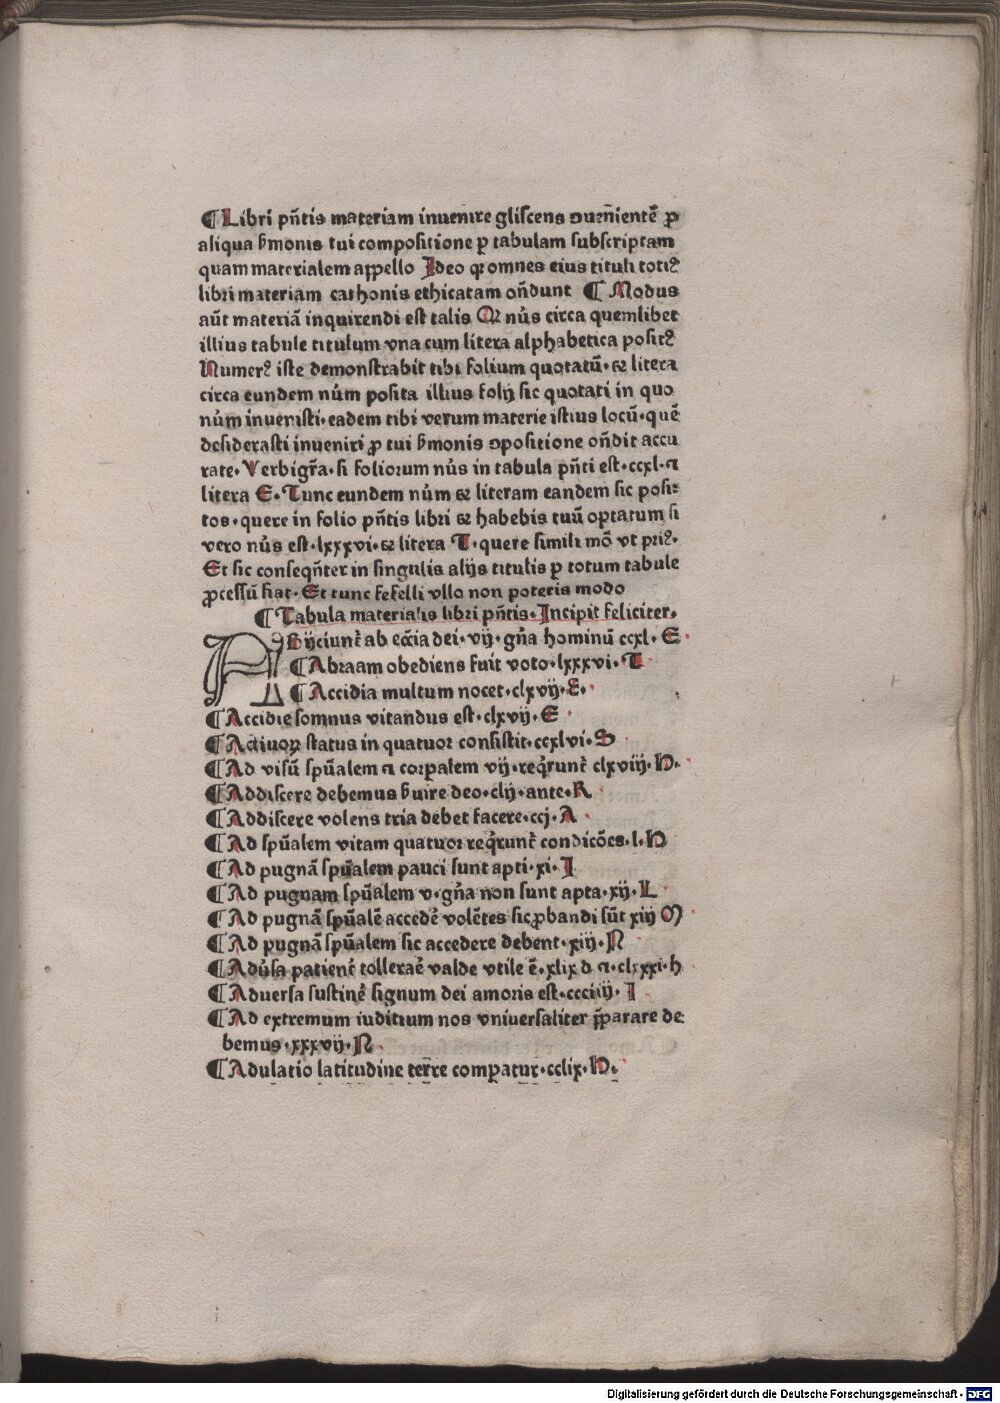 ¶ Libri pñtis materiam inuenire gliscens ↄueniente᷑ ꝓ
aliqua ẜmonis tui compositione ꝑ tabulam subscriptam
quam materialem appello Ideo qꝛ omnes eius tituli totiꝰ
libri materiam cathonis ethicatam oñdunt ¶ Modus
aūt materiā inquirendi est talis Qꝛ nūs circa quemlibet
illius tabule titulum vna cum litera alphabetica positꝰ
Numerꝰ iste demonstrabit tibi folium quotatū· ⁊ litera
circa eundem nūm posita illius folij sic quotati in quo
nūm inuenisti· eadem tibi verum materie istius locū· quē
desiderasti inueniri ꝓ tui ẜmonis ↄpositione oñdit accu
rate· Verbigr̄a· si folioꝛum nūs in tabula pñti est· ccxl· a
litera E· Tunc eundem nūm ⁊ literam eandem sic posi⸗
tos· quere in folio pñtis libri ⁊ habebis tuū optatum si
vero nūs est· lxxxvi· ⁊ litera T· quere simili mō vt priꝰ·
Et sic conseqñter in singulis alijs titulis ꝑ totum tabule
ꝓcessū fiat· Et tunc fefelli vllo non poteris modo
¶ Tabula materialis libri pñtis· Incipit feliciter·
ABijciunt᷑ ab eccia dei· vij· gña hominū ccxl· E·
¶ Abraam obediens fuit voto· lxxxvi· T
¶ Accidia multum nocet· clxvij· E·
¶ Accidie somnus vitandus est· clxvij· E
¶ Actiuoꝝ status in quatuoꝛ consistit· ccxlvi· S
¶ Ad visū spūalem a coꝛpalem vij· reqͥrunt᷑ clxviij· H·
¶ Addiscere debemus ẜuire deo· clij· ante· K
¶ Addiscere volens tria debet facere· ccj· A
¶ Ad spūalem vitam quatuoꝛ reqͥrunt᷑ condicōes· l· H
¶ Ad pugnā spūalem pauci sunt apti· xi· I
¶ Ad pugnam spūalem v· gña non sunt apta· xij· L
¶ Ad pugnā spūalē accedē volētes sic ꝓbandi sūt xiij M
¶ Ad pugnā spūalem sic accedere debent· xiij· N
¶ Adūsa patient᷑ tolleraē valde vtile ē· xlix d a· clxxxi· h
¶ Aduersa sustinē signum dei amoris est· ccciiij· I
¶ Ad extremum iuditium nos vniuersaliter p̄parare de⸗
bemus· xxxvij· N
¶ Adulatio latitudine terre comꝑatur· cclix· H·
Digitalisierung gefördert durch die Deutsche Forschungsgemeinschaft - DFG